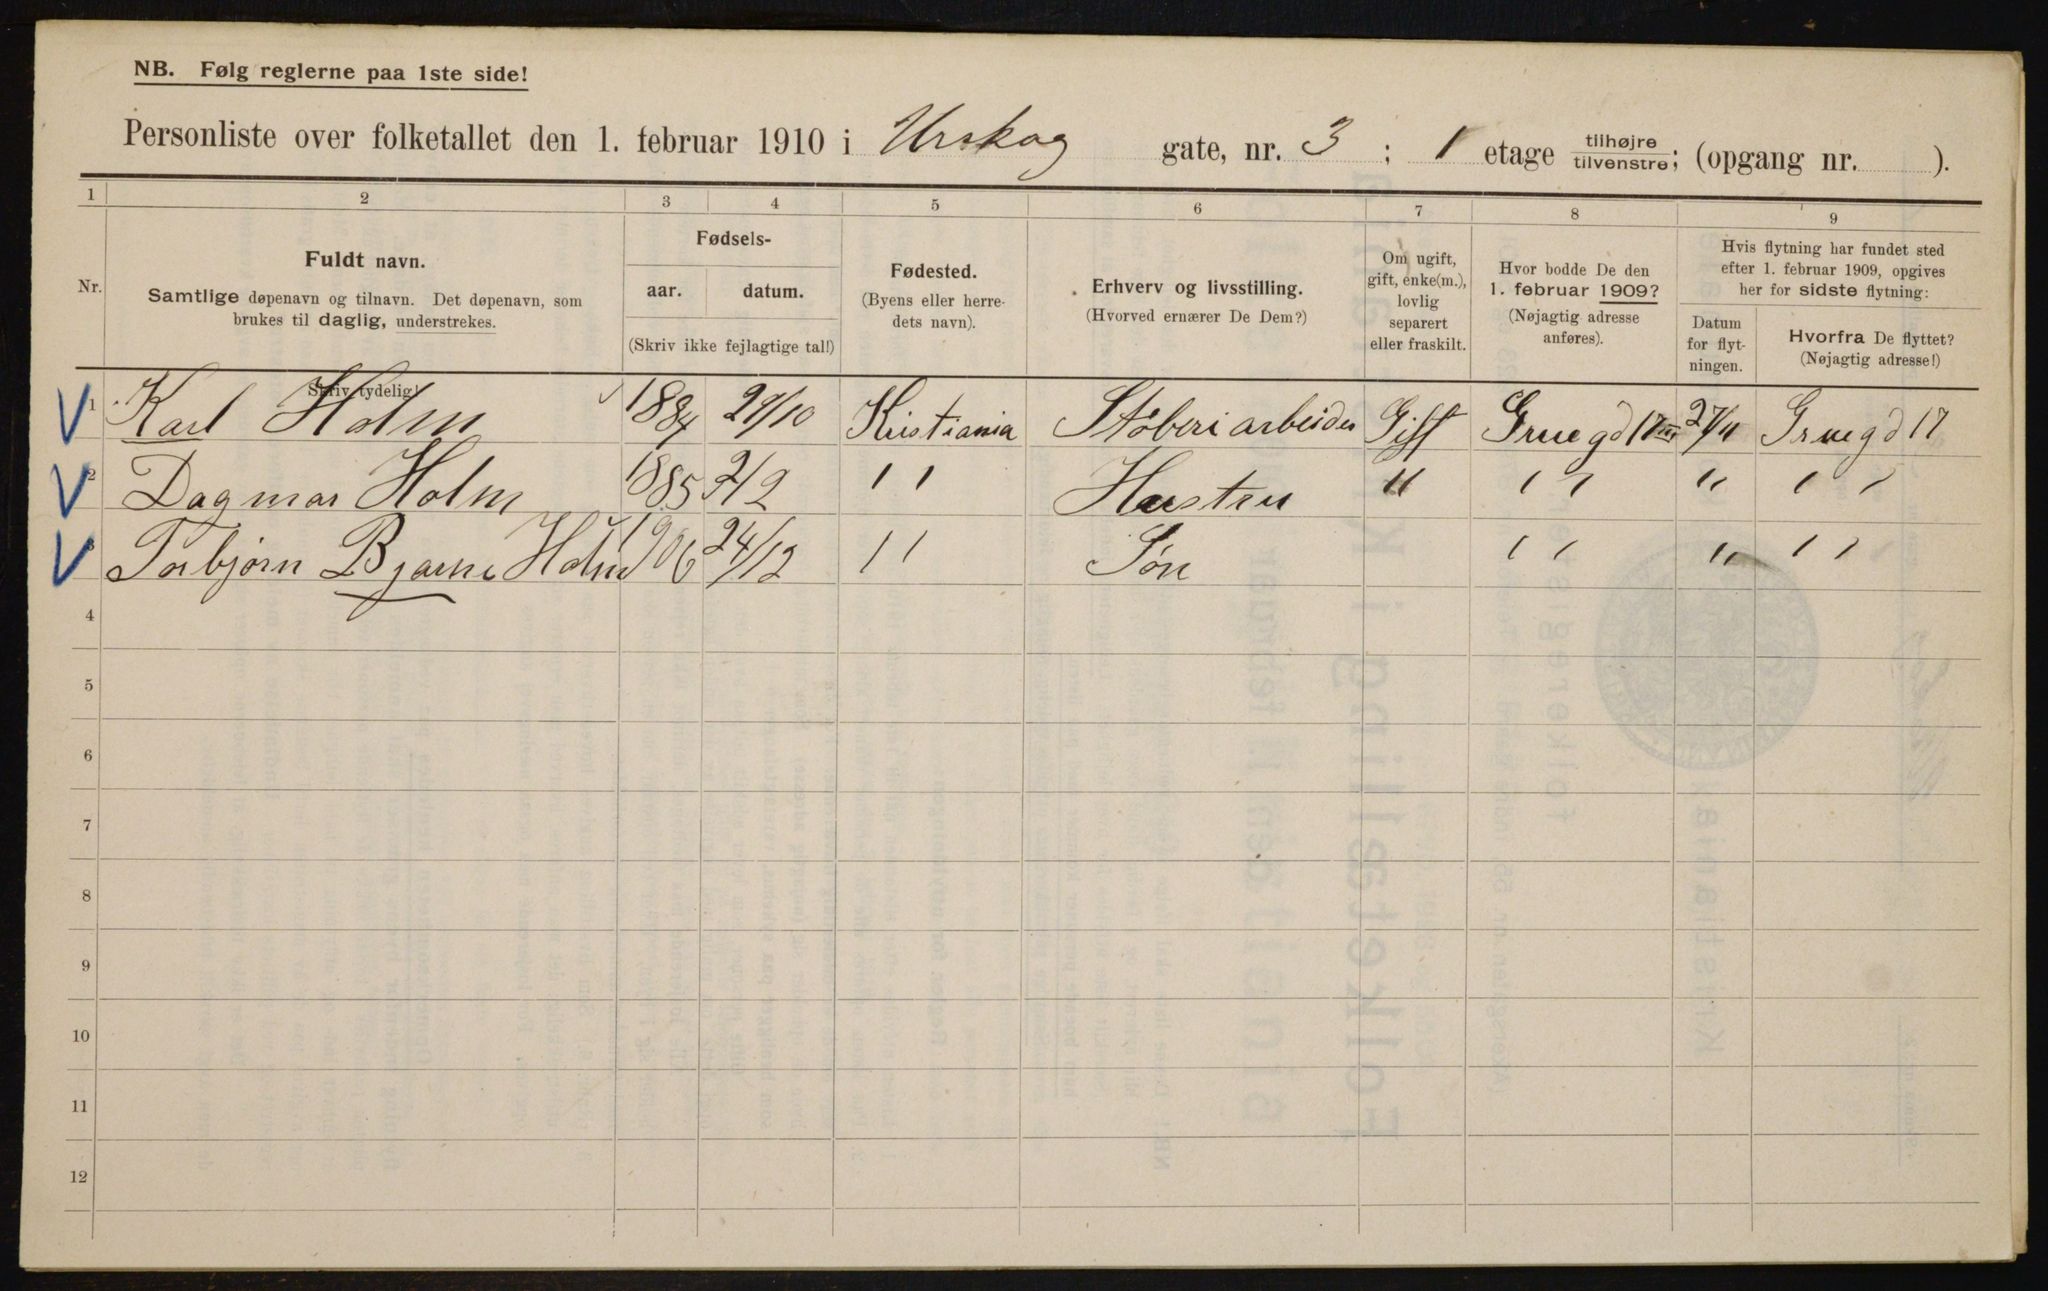 NB. Følg reglerne paa 1ste side!
Personliste over folketallet den 1. februar 1910 i Urskog gate, nr. 3 ; 1 etage tilhøjre tilvenstre; (opgang nr. ).
1 2 3 4 5 6 7 8 9
Nr.
Fuldt navn.
Samtlige døpenavn og tilnavn. Det døpenavn, som
brukes til daglig, understrekes.
Skriv tydelig!
Fødsels-
aar. datum.
(Skriv ikke fejlagtige tal!)
Fødested.
(Byens eller herre-
dets navn).
Erhverv og livsstilling.
(Hvorved ernærer De Dem?)
Om ugift,
gift, enke(m.),
lovlig
separert
eller fraskilt.
Hvor bodde De den
1. februar 1909?
(Nøjagtig adresse
anføres).
Hvis flytning har fundet sted
efter 1. februar 1909, opgives
her for sidste flytning:
Datum
for flyt-
ningen.
Hvorfra De flyttet?
(Nøjagtig adresse!)
1 Karl Holm 1884 29/10 Kristiania Støberiarbeider Gift Gruegd 17 III 27/11 Gruegd 17
2 Dagmar Holm 1885 2/2 " Hustru " " " " " "
3 Torbjørn Bjarne Holm 1906 24/12 " Søn " " " " "
4
5
6
7
8
9
10
11
12